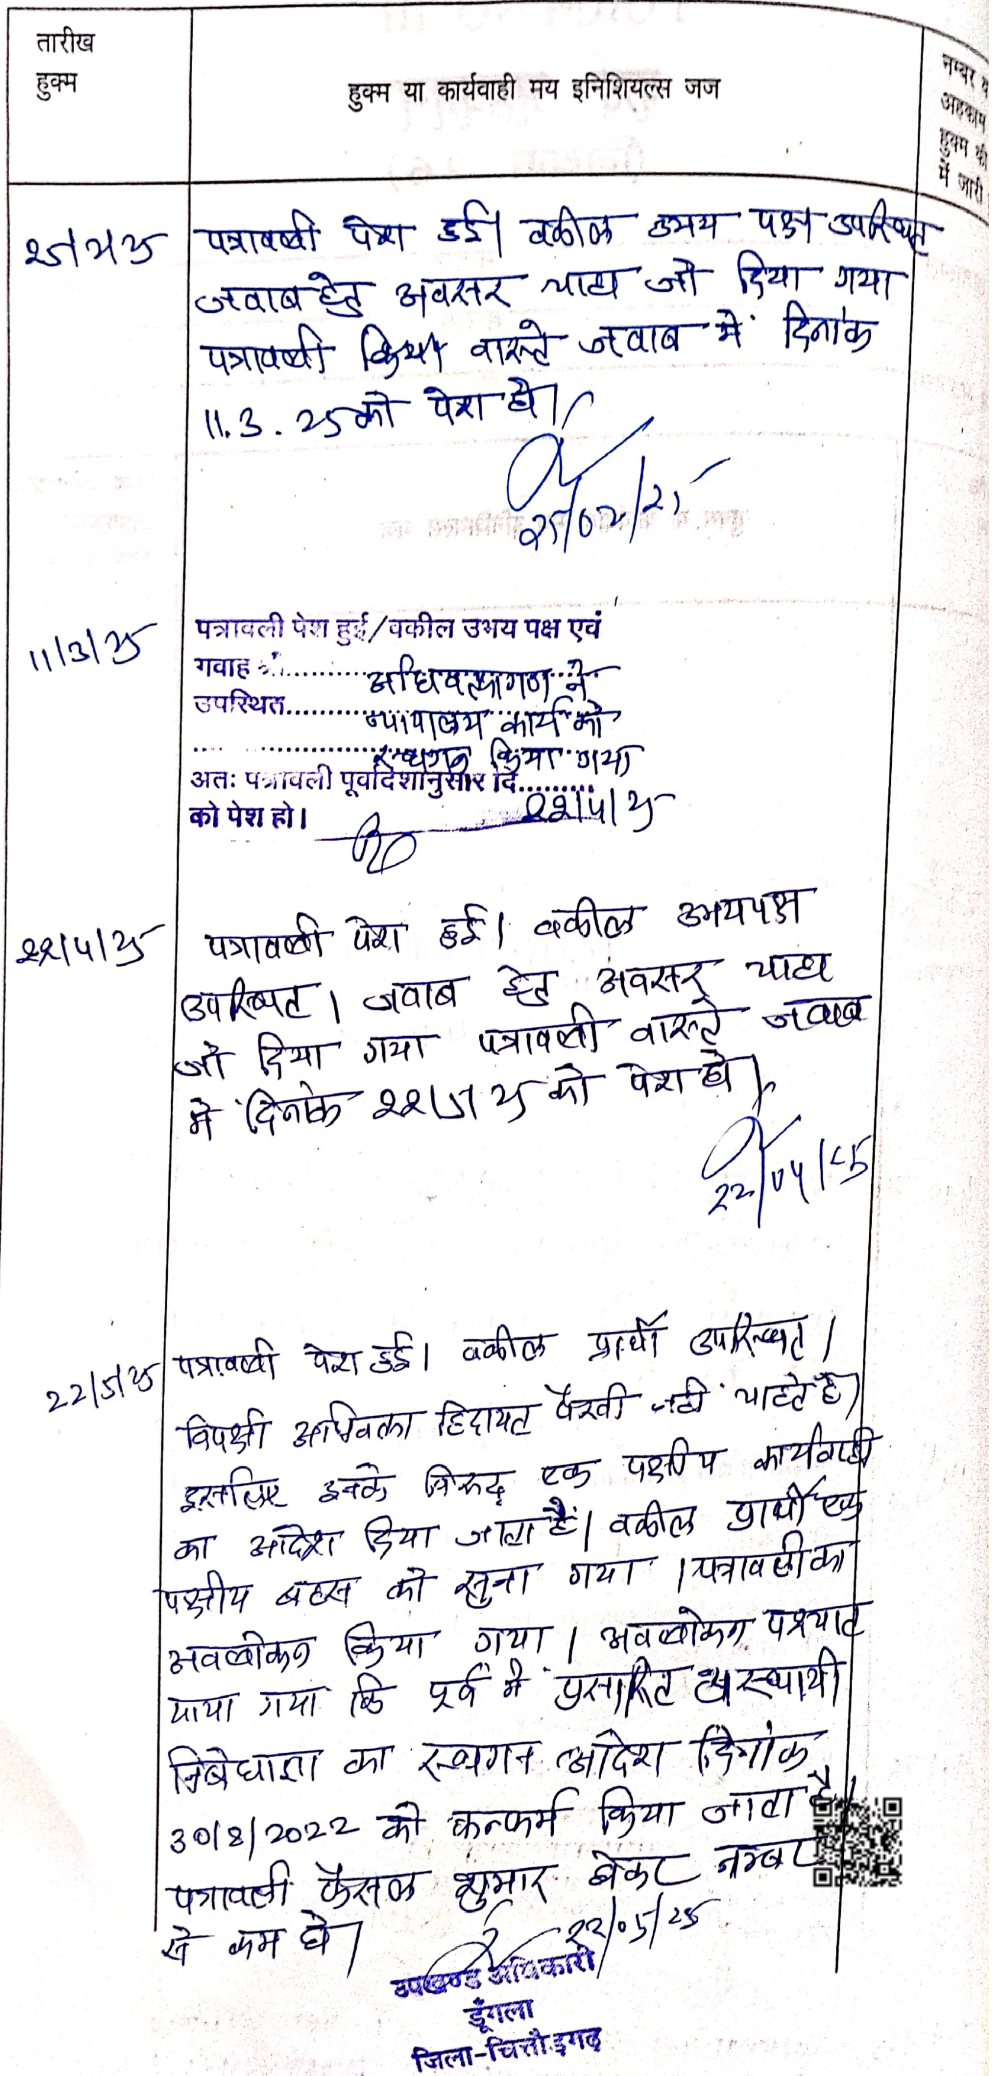 तारीख
हुक्म
हुक्म या कार्यवाही मय इनिशियल्स जज
नम्बर व
अहकाम
हुक्म की
में जारी
25/2/25 पत्रावली पेश हुई। वकील उभय पक्ष उपस्थित
जवाब हेतु अवसर चाहा जो दिया गया
पत्रावली वास्ते जवाब में दिनांक
11.3.25 को पेश हो।
25/02/25
11/3/25 पत्रावली पेश हुई/वकील उभय पक्ष एवं
गवाह श्री............ अधिवक्तागण ने
उपस्थित............ न्यायालय कार्य को
स्थगन किया गया
अतः पत्रावली पूर्वादेशानुसार दि..........
22/4/25
को पेश हो।
22/4/25 पत्रावली पेश हुई। वकील उभयपक्ष
उपस्थित। जवाब हेतु अवसर चाहा
जो दिया गया पत्रावली वास्ते जवाब
में दिनांक 22/5/25 को पेश हो।
22/04/25
22/5/25 पत्रावली पेश हुई। वकील प्रार्थी उपस्थित।
विपक्षी अधिवक्ता हिदायत पैरवी नही चाहते है।
इसलिए इनके विरुद्ध एक पक्षीय कार्यवाही
का आदेश दिया जाता है। वकील प्रार्थी एक
पक्षीय बहस को सुना गया। पत्रावली का
अवलोकन किया गया। अवलोकन पश्चात
पाया गया कि पूर्व में प्रसारित अस्थायी
निषेधाज्ञा का स्थगन आदेश दिनांक
30/8/2022 को कन्फर्म किया जाता है।
पत्रावली फैसल शुमार होकर नम्बर
से कम हो।
22/05/25
उपखण्ड अधिकारी
डूँगला
जिला-चित्तौड़गढ़